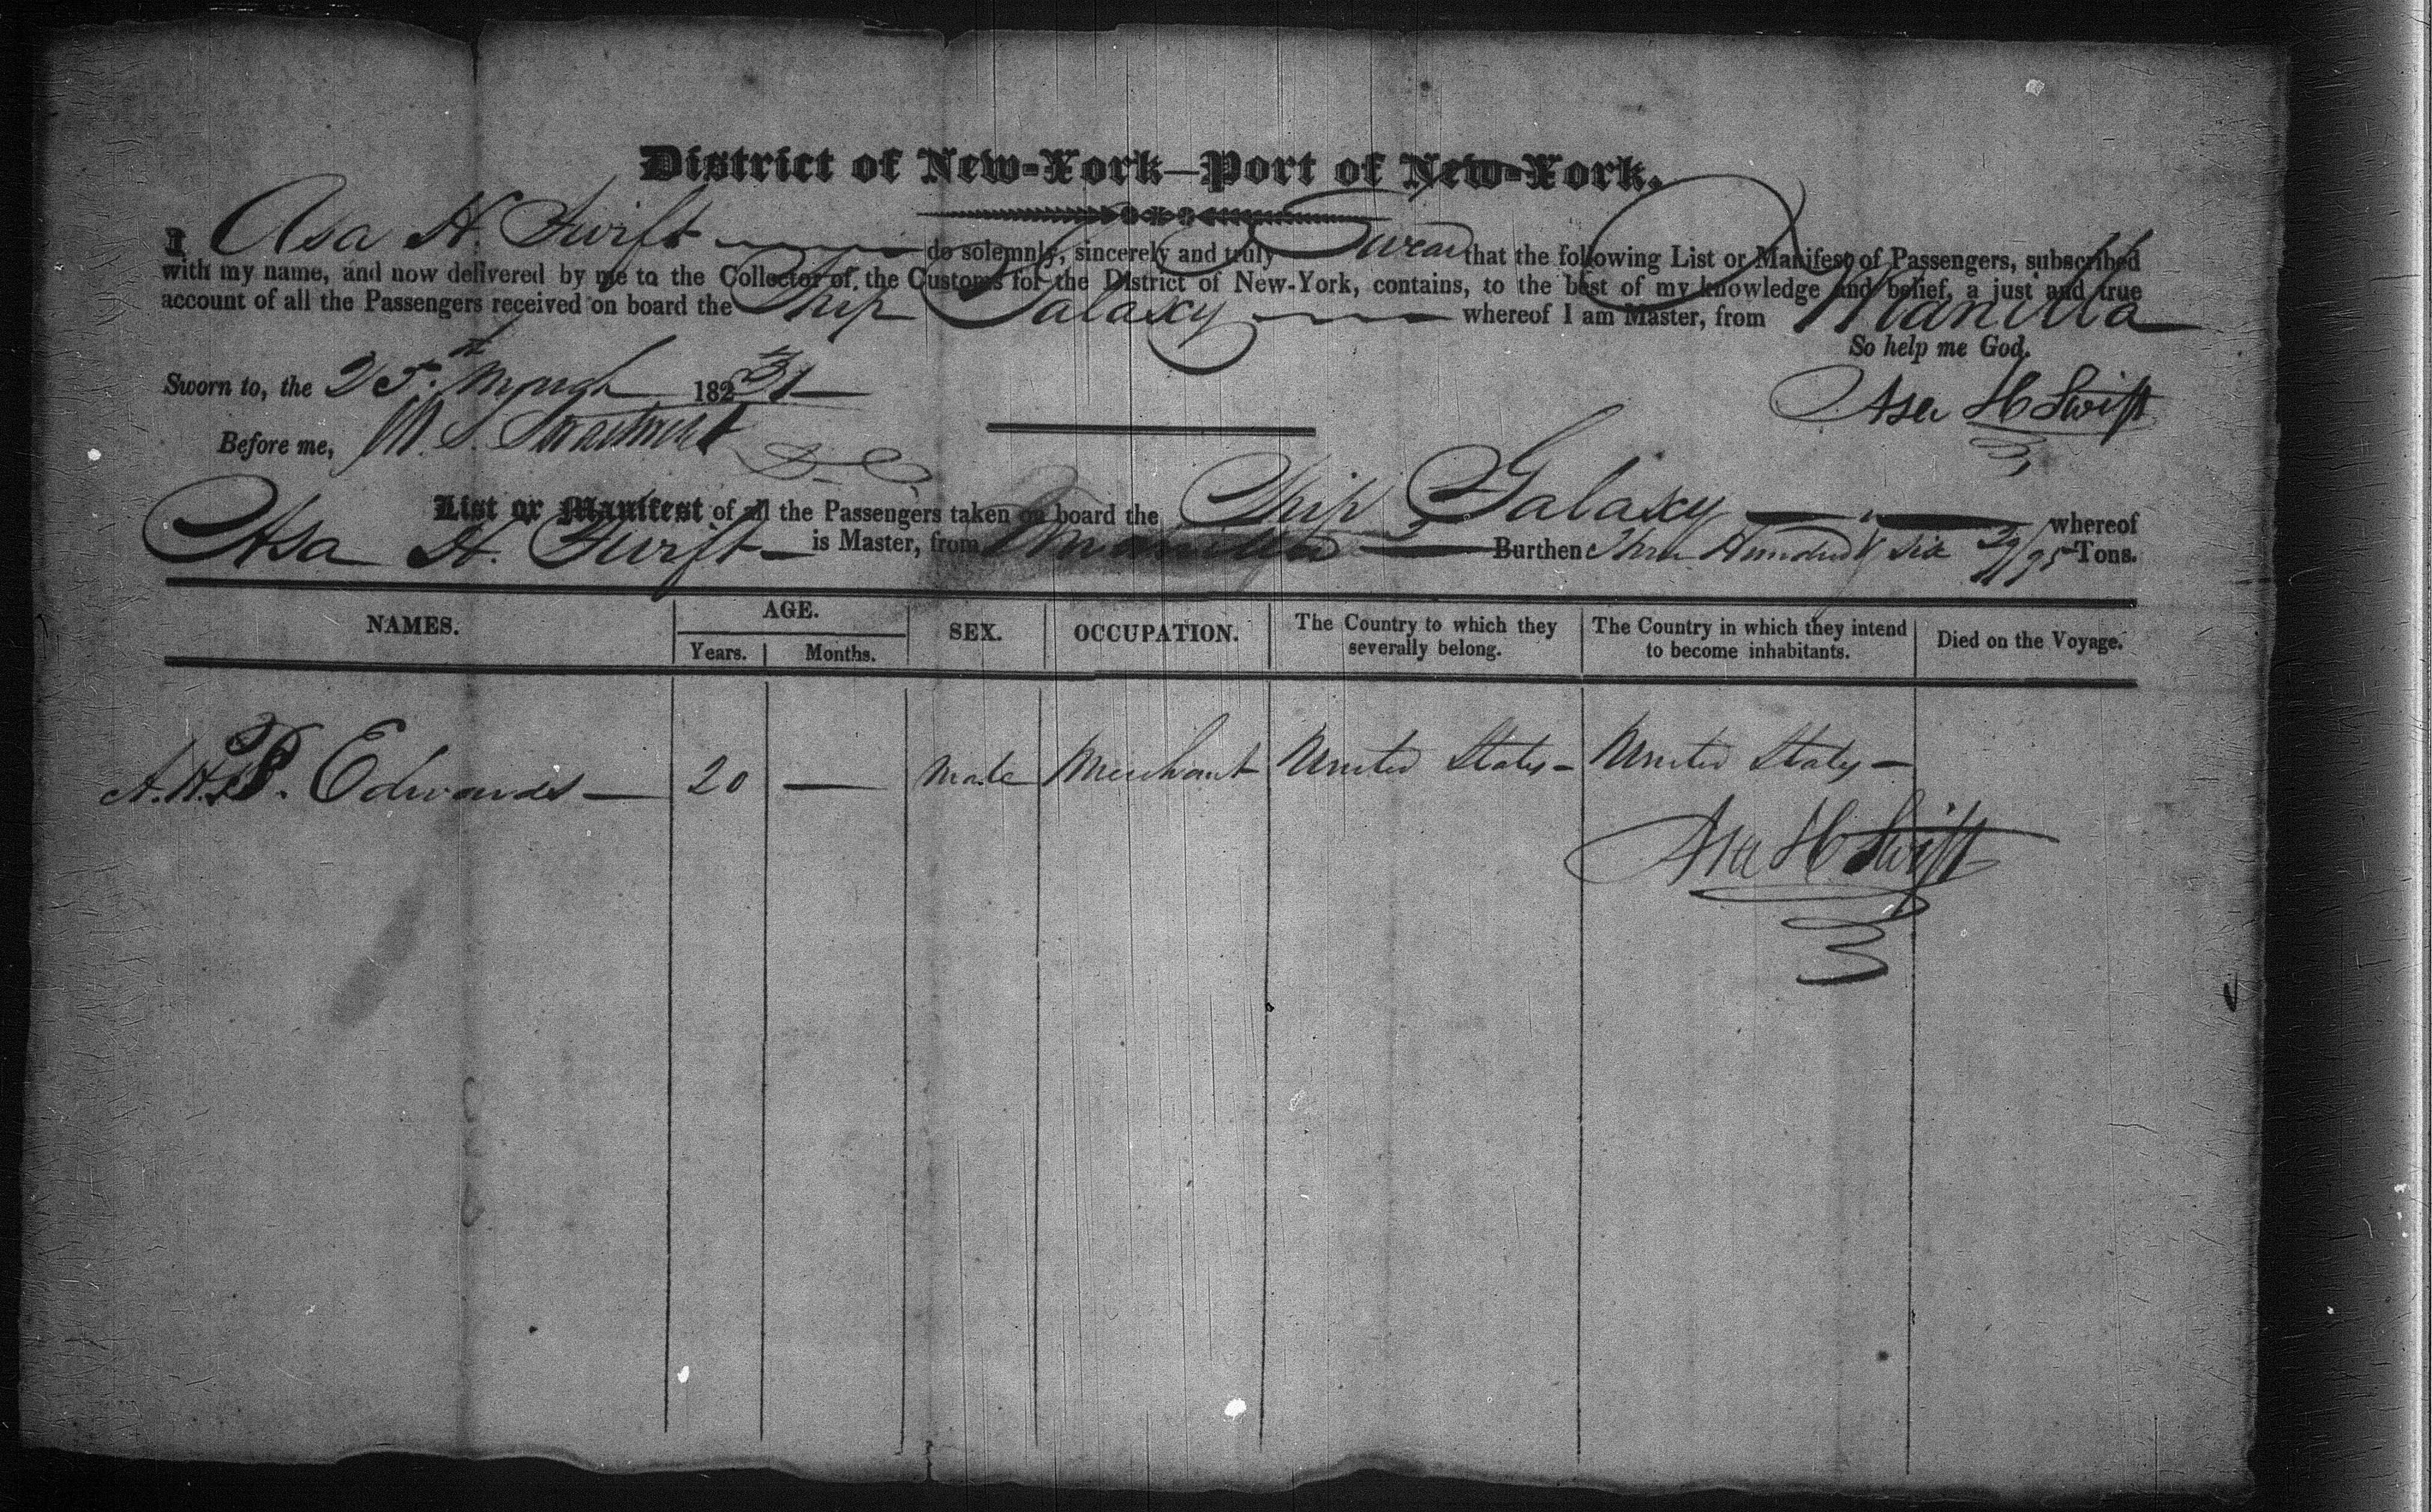 District of New-York—Port of New-York.
I Asa H. Swift do solemnly, sincerely and truly Swear that the following List or Manifest of Passengers, subscribed
with my name, and now delivered by me to the Collector of the Customs for the District of New-York, contains, to the best of my knowledge and belief, a just and true
account of all the Passengers received on board the Ship Galaxy whereof I am Master, from Manilla
So help me God.
Sworn to, the 25th 1831
Asa H Swift
Before me,
List or Manifest of all the Passengers taken on board the Ship Galaxy whereof
Asa H. Swift is Master, from Manilla Burthen Three Hundred & six /95 Tons.
NAMES. AGE. SEX. OCCUPATION. The Country to which they severally belong. The Country in which they intend to become inhabitants. Died on the Voyage.
Years. Months.
Edwards — 20 — Male Merchant United States — United States —
Asa H Swift